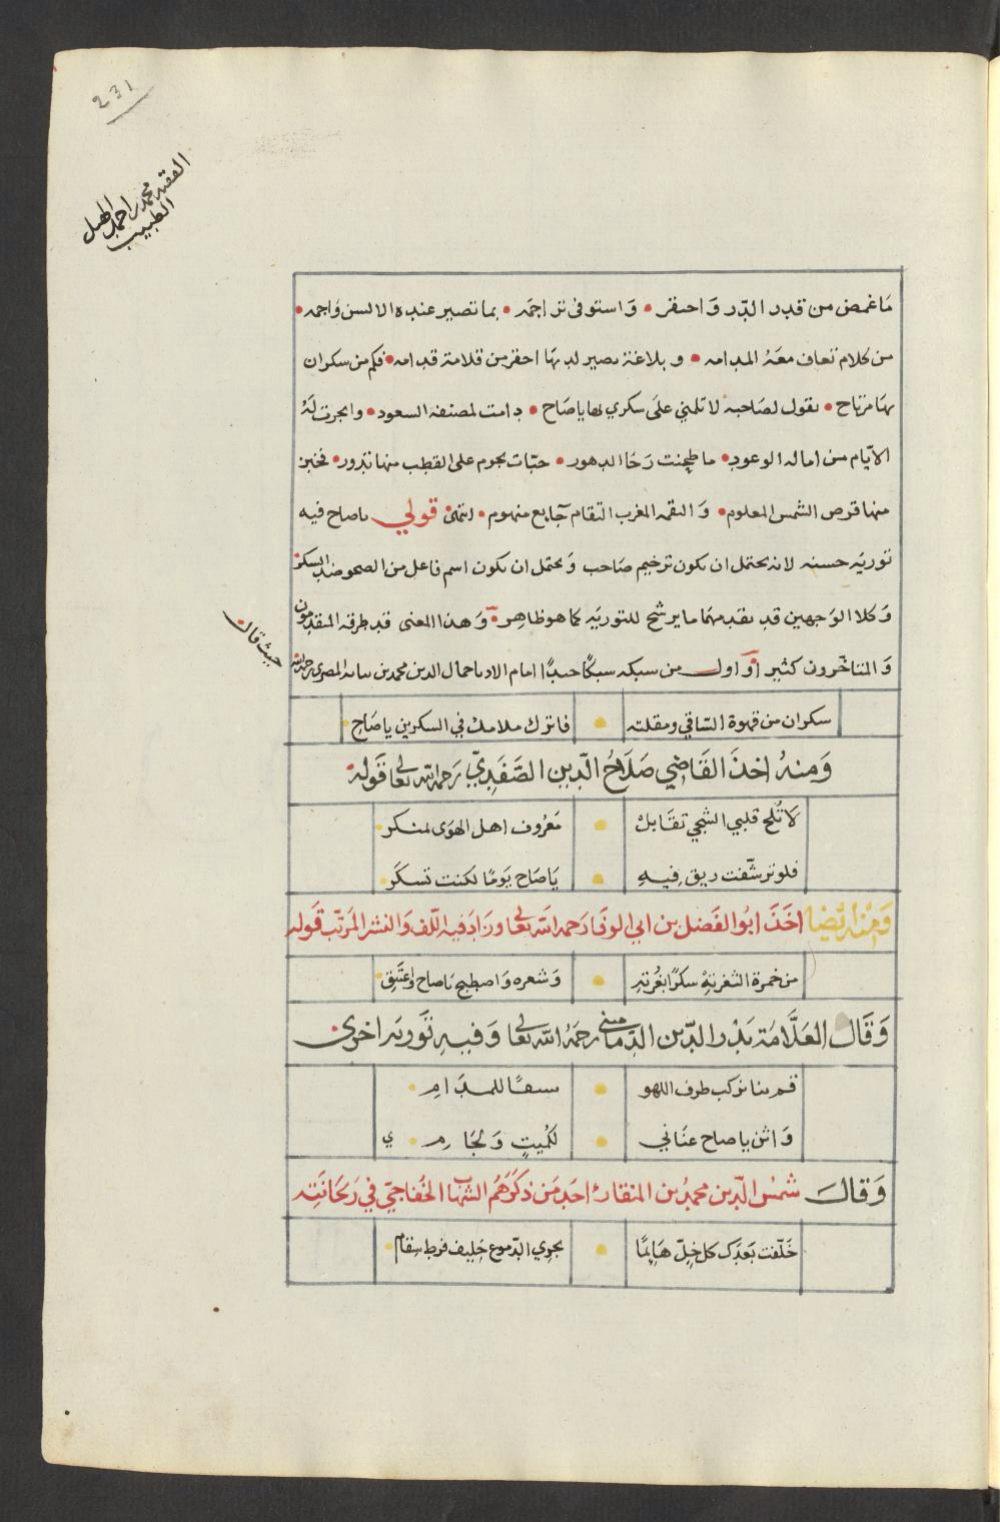 231
الفقيه محمد بن احمد الهبل
الطبيب
مَا غمض من قدر الدّر وَاحتقر • وَاستوفى تراجمه • بما تصير عنده الالسن وَاجمه •
من كلام تعاف معَهُ المدامه • و بلاغة تصير لديهَا احقر من قلامة قدامه • فكم من سكران
بهَا مرتاح • يقول لصَاحبه لا تلمني علَى سكري بها يا صَاح • دامت لمصنفه السعود • وانجزت لهُ
الايّام من اماله الوعود • ما طحنت رَحَا الدهور • حبّات نجوم على القطب منها تدور • فخبز
منها قرص الشمس المعلوم • وَ التقمه المغرب التقام جَايع منهوم • انتهى قولي ياصاح فيه
توريَه حسنه لانه يحتمل ان يكون ترخيم صَاحب وَ يحتمل ان يكون اسم فاعل من الصحو ضد السكر
وَكلا الوَجهين قد تقدمهمَا ما يرشح للتوريَه كما هو ظاهر • وَهذا المعنى قد طرقه المتقدمون
وَ المتاخّرون كثير اوَ اول من سبكه سبكًا حسنًا امام الادبا جمال الدين محمد بن نباته المصري رحمه الله
حيث قال
سكران من قهوة السّاقي ومقلته • فاترك ملامك في السكرين يا صَاح •
وَمنهُ اخذَ القَاضي صَلَاحُ الدّين الصَّفَدِيّ رَحمه الله تعالى قَولهُ
لَا تُلح قلبي الشجي تقَابلْ • مَعرُوف اهل الهوَى بمنكر •
فلو ترشّفت ريق فيهِ • يَا صَاح يَومًا لكنت تسكَر •
وَمنْه ايْضا اخَذَ ابُوا الفَضل بن ابي الوفَا رَحمه الله تعالى وزَادَ فيه اللّف وَالنشر المرَتّب قَوله
من خمرة الثغر تهْ سكرًا بغُرته • وَشعره وَاصطبح يَاصاح وَاغتَبِق •
وَقَال العَلَّامَة بَدْر الدّين الدّمَاميني رَحمَهُ الله تعالى وَفيهِ تَوريَه اخرى
قم بنا نركب طرف اللهو • سبقًا للمدَامِ •
وَاثن يا صاح عنَاني • لكُميتٍ وَلجَامِ • ي
وَقالَ شمسْ الدّين محمدُ بن المنقار احَد مَن ذكَرَهُم الشهاب الخفَاجيّ في رَيحَانَتِه
خَلّفت بَعدَك كل خِلّ هَايمًا • بجوي الدّموع حَليف فرط سِقام •